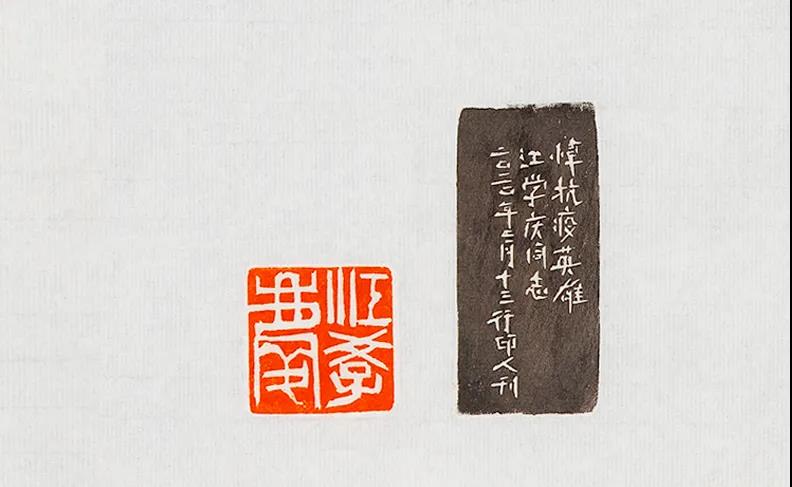 江學慶
悼抗疫英雄
江学庆同志
二〇二〇年三月十三行印人刊